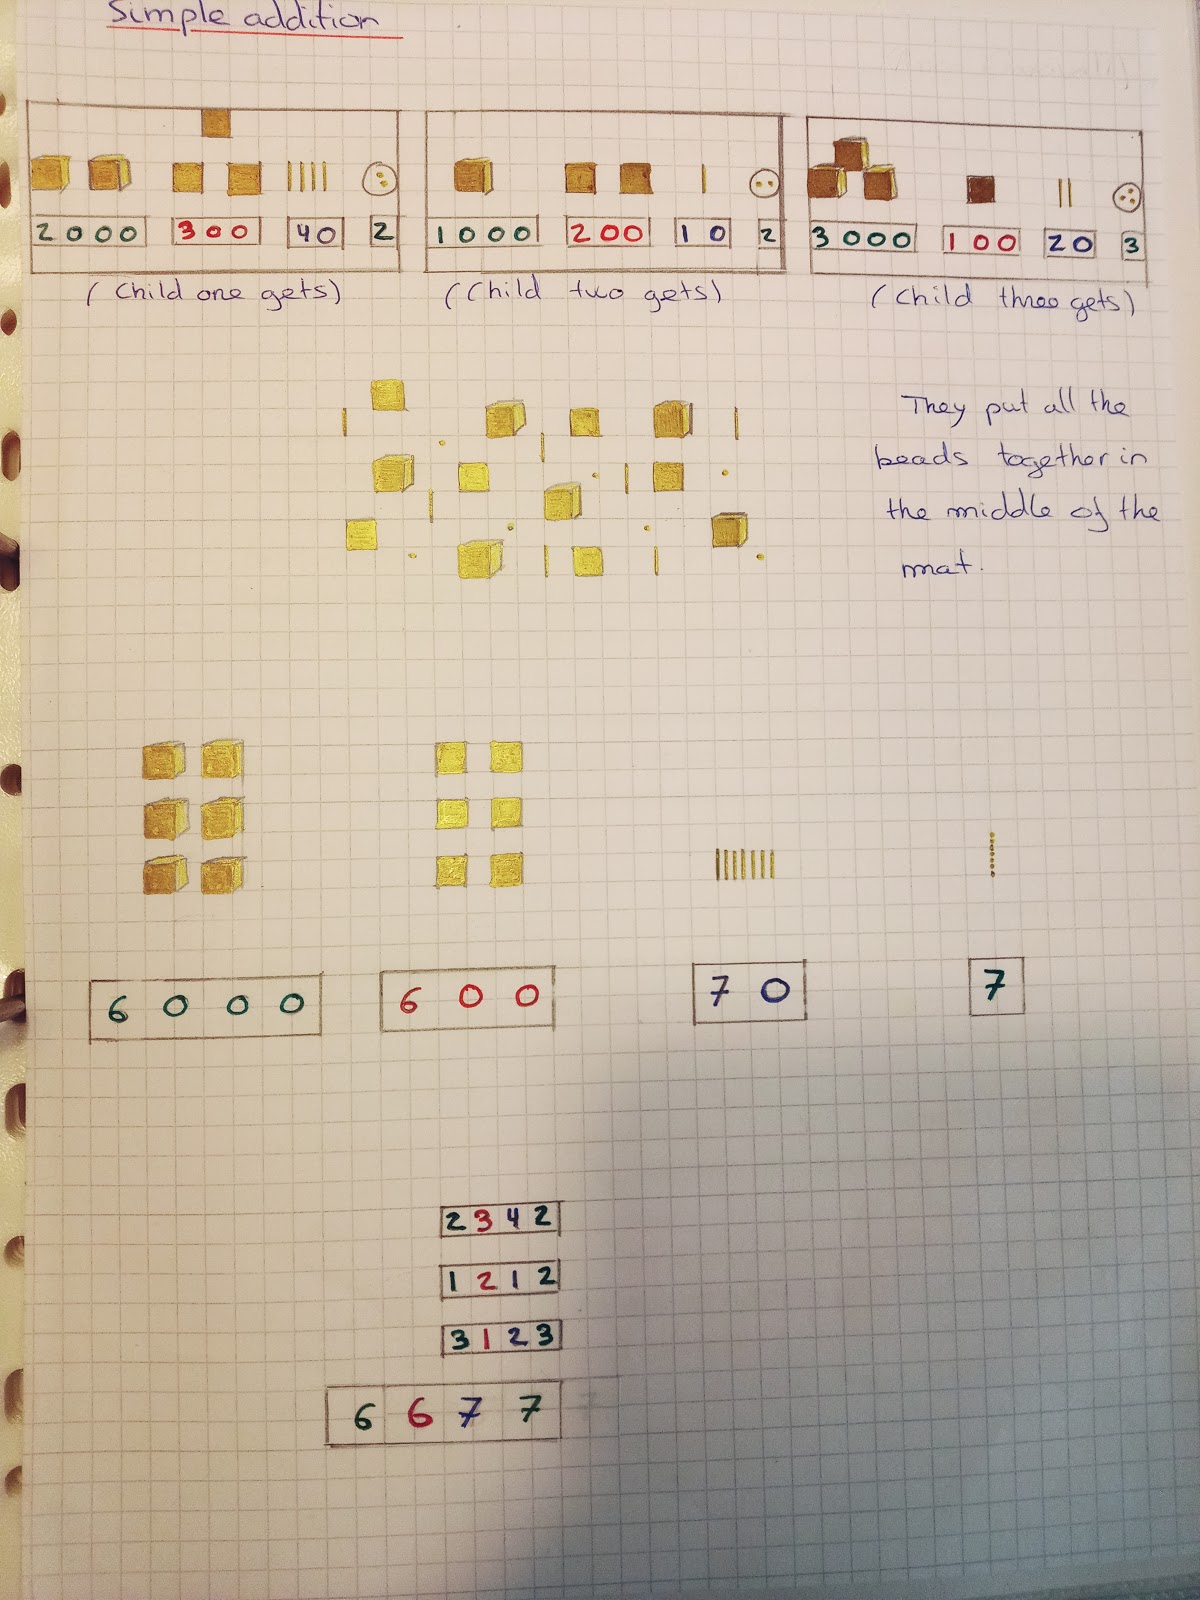 Simple addition
2000 300 40 2
1000 200 10 2
3000 100 20 3
(Child one gets)
(Child two gets)
(Child three gets)
They put all the
beads together in
the middle of the
mat.
6000 600 70 7
2342
1212
3123
6677